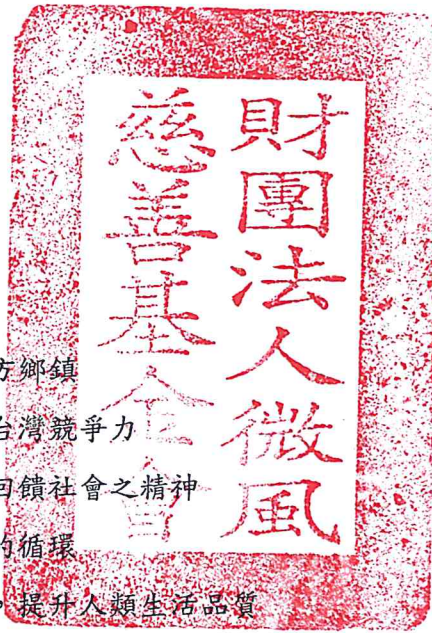 財團法人微風
慈善基金會
方鄉鎮
台灣競爭力
回饋社會之精神
的循環
，提升人類生活品質